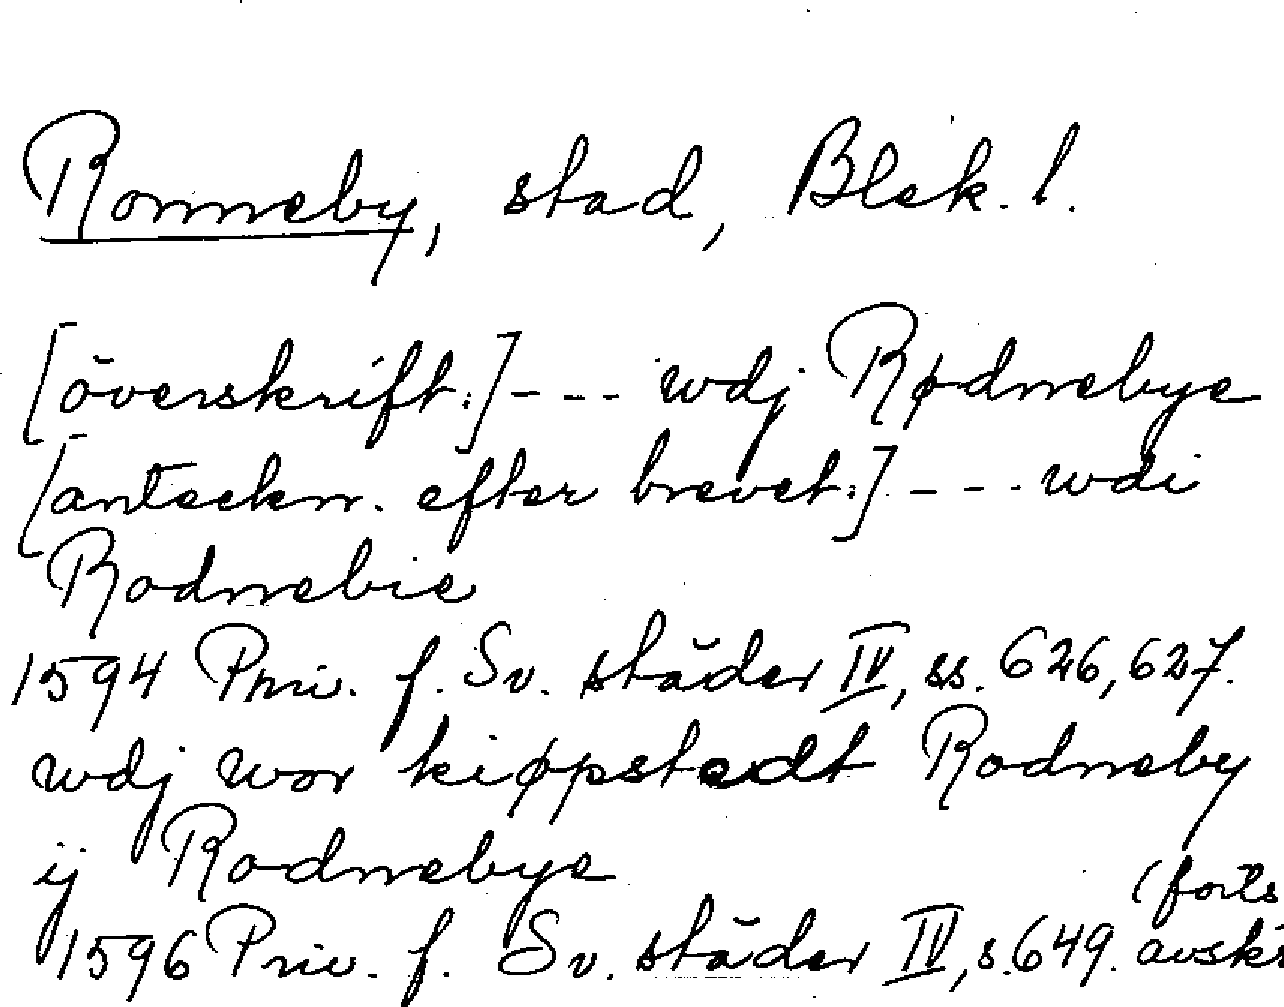 Ronneby, stad, Blek. l.
[överskrift:] - - - wdj Rødnebye
[anteckn. efter brevet:] - - - wdi
Rodnebie
1594 Priv. f. Sv. städer IV, ss. 626, 627.
wdj wor kiøpstedt Rodneby
ij Rodnebye
(forts
1596 Priv. f. Sv. städer IV, s. 649. avskr